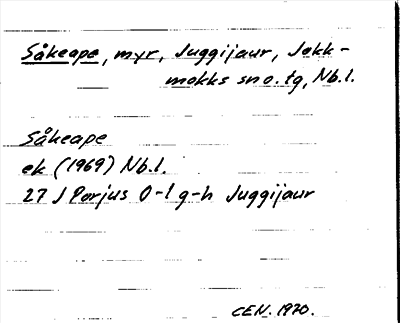 Såkeape, myr, Juggijaur, Jokk-
mokks sno.tg, Nb.l.
Såkeape
ek (1969) Nb.l.
27 J Porjus 0-1 g-h Juggijaur
CEN. 1970.